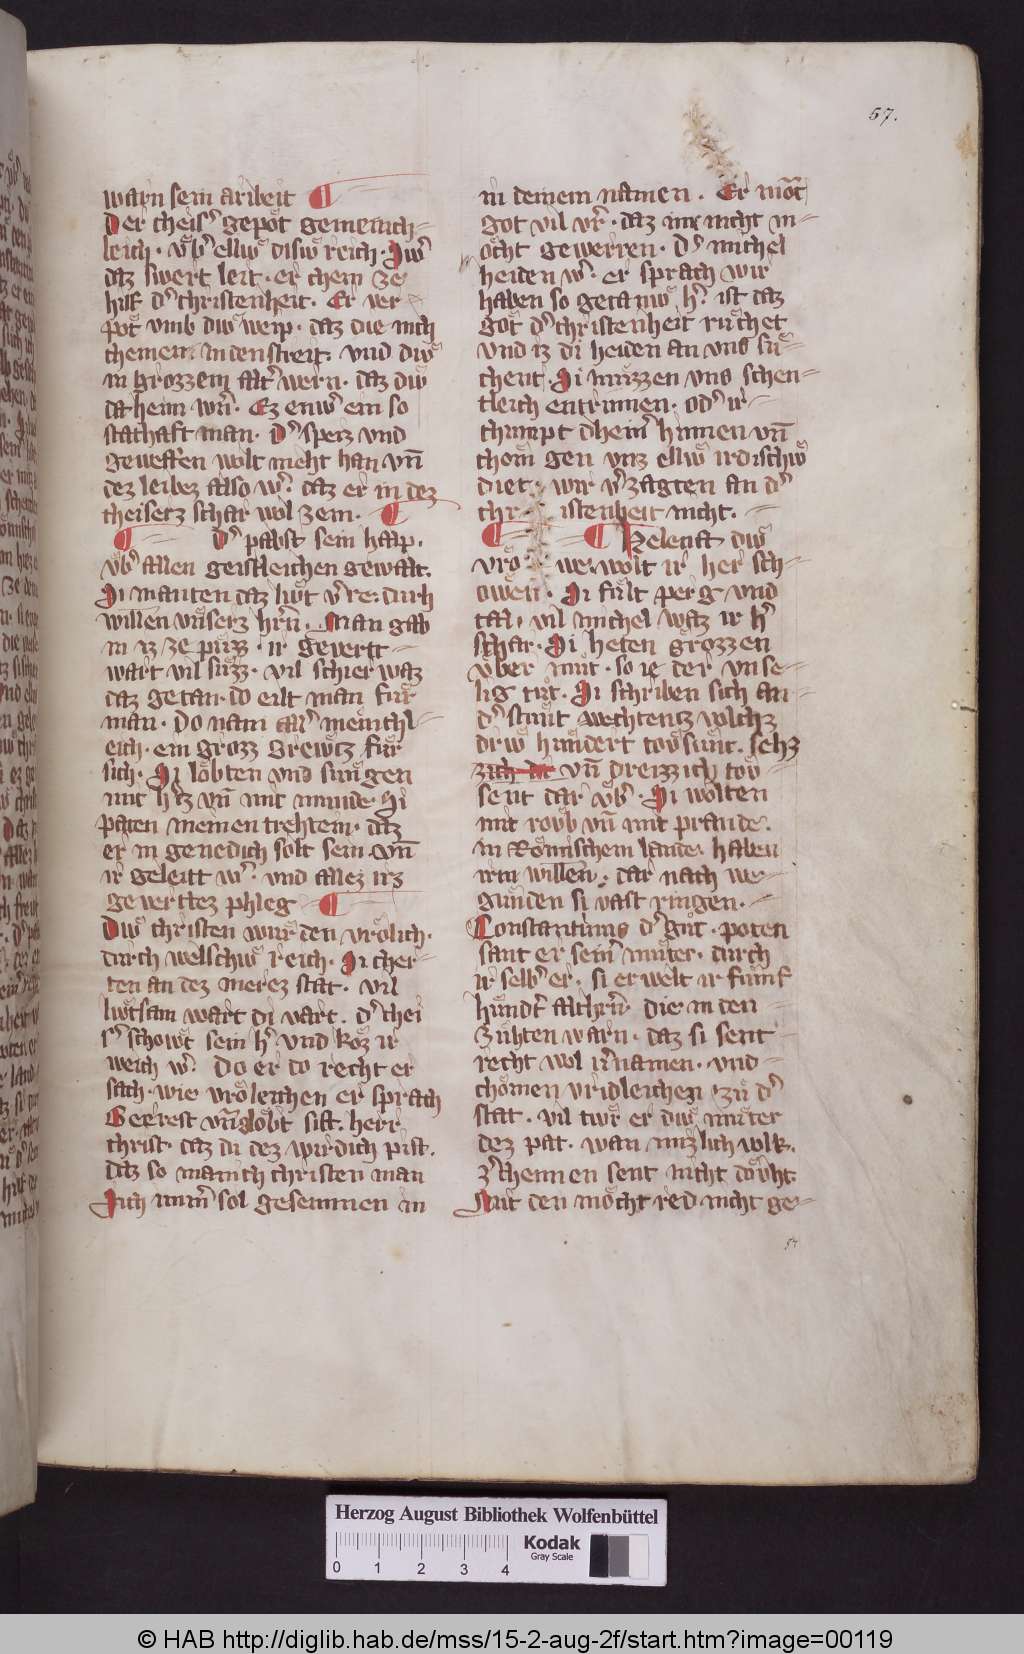 57.
warn sein arbeit ¶
Der cheisˀ gepot gemeinich-
leich · vͤbˀ ellew disew reich · Swˀ
daz swert leit · er chem ze
hilf dˀ christenheit · Er ver
pot vmb diw weip · daz die nich
chemen in den streit · vnd diw
in grozzem altˀ wern · daz diw
da heim wrͤn · Ez enwˀ ein so
stathaft man · Dˀ speiz vnd
geweffen wolt nicht han vn̄
dez leibez also wˀ · daz er in dez
cheiserz schar wol zem · ¶
¶ Dˀ pabst sein halp ·
vͤbˀ allen geistleichen gewalt ·
Si manten daz livͤt vˀre · durh
willen vnserz hrͤn · Man gab
in iz ze puͤzz · ir gevertt
wart vil suͤzz · vil schier waz
daz getan · do eilt man fuͤr
man · Do nam allˀ menichl-
eich · ein grozz Crewtz fuͤr
sich · Si lobten vnd sungen
mit hˀtz vn̄ mit munde · Si
paten meinen trehtein · daz
er in genedich solt sein vn̄
ir geleitt wˀ · vnd allez irz
gevertez phleg ¶
Diw christen wurden vrölich ·
durch welschiw reich · Si cher-
ten an dez merez stat · vil
liwtsam wart di vart · dˀ chei
sˀ schowt sein hˀ vnd koz ir
weich wˀ · Do er do recht er
sach · wie vröleichen er sprach
Geerest vn̄ globt sist · herr
christ · daz du dez wirdich pist ·
daz so manich christen man
Sich nimˀ sol gesemnen in
in deinem namen · Er mͤat
got vil vrˀ · daz im nicht m-
öcht gewerren · Dˀ michel
heiden wˀ · er sprach wir
haben so getaniw hˀ · ist daz
got dˀ christenheit ruͤchet
vnd iz di heiden an vns suͤ-
chent · Si muͤzzen vns schen-
tleich entrinnen · odˀ ir
chumpt dheinˀ hinnen vn̄
chom gen vnz elliw irdischiw
diet · wir vˀzagten an dˀ
chr istenheit nicht ·
¶ ¶ Helena diw
vro we wolt ir her sch-
owen · Si fuͤlt perg vnd
tal · vil michel waz ir hˀ
schar · Si heten grozzen
vber muͤt · so ie der vnse-
lig tuͤt · Si schriben sich an
dˀ stunt wechtentz volchz
driw hundert tovsunt · sehz
zich di vn̄ dreizzich tov
sent dar vͤbˀ · Si wolten
mit rovb vn̄ mit prande ·
in Römischem lande haben
irn willen · dar nach we-
gunden si vast ringen ·
Constantinus dˀ guͤt · poten
sant er seinˀ muͤter · durch
ir selbˀ er · si erwelt ir fuͤnf
hundˀt althrͤn die in den
zuͤhten warn · daz si sent
recht wol irˀ namen · vnd
chömen vridleichen zuͤ dˀ
stat · vil tiwr er diw muͤter
dez pat · wan mizlich wolk ·
zˀchennen sent nicht dovht ·
Mit den mocht red nicht ge-
57
Herzog August Bibliothek Wolfenbüttel
0 1 2 3 4
Kodak
Gray Scale
© HAB http://diglib.hab.de/mss/15-2-aug-2f/start.htm?image=00119